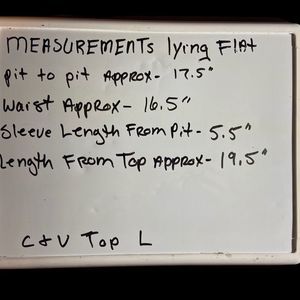 MEASUREMENTS lying FlAt
pit to pit Approx- 17.5"
Waist Approx- 16.5"
Sleeve Length From Pit- 5.5"
Length From Top Approx- 19.5"
C&V Top L